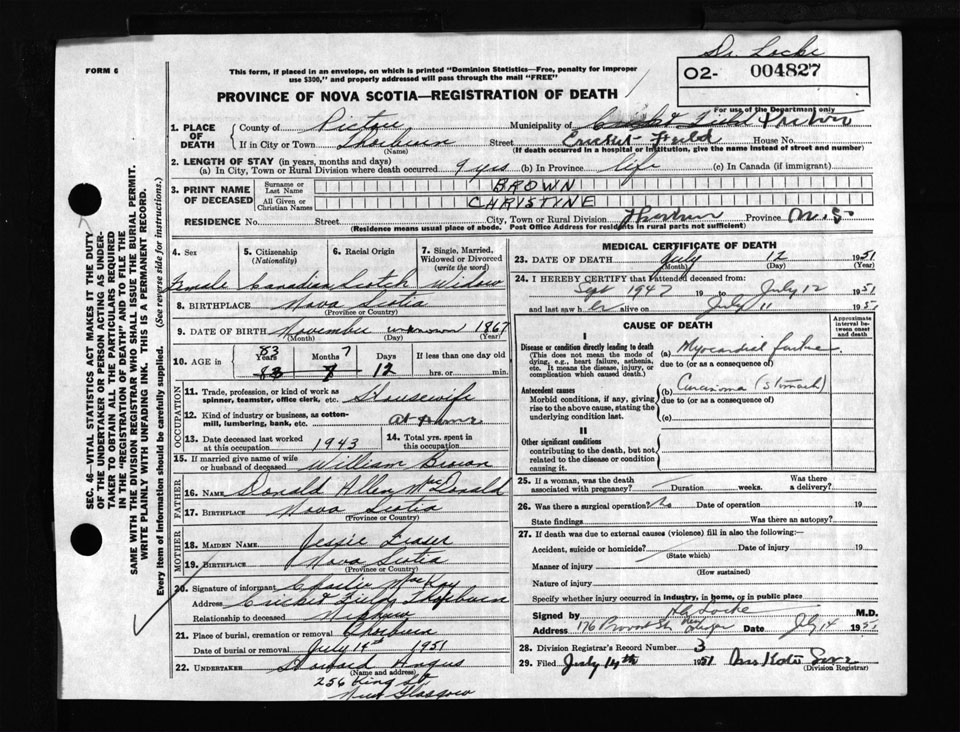 Dr. Locke
FORM 6
This form, if placed in an envelope, on which is printed "Dominion Statistics—Free, penalty for improper
use $300," and properly addressed will pass through the mail "FREE"
02- 004827
PROVINCE OF NOVA SCOTIA—REGISTRATION OF DEATH
For use of the Department only
1. PLACE OF DEATH County of Pictou Municipality of Cricket Field Pictou
If in City or Town Thorburn (Name) Street Cricket Field House No.
(If death occurred in a hospital or institution, give the name instead of street and number)
2. LENGTH OF STAY (in years, months and days)
(a) In City, Town or Rural Division where death occurred 9 yrs (b) In Province life (c) In Canada (if immigrant)
3. PRINT NAME OF DECEASED Surname or Last Name BROWN
All Given or Christian Names CHRISTINE
RESIDENCE No. Street City, Town or Rural Division Thorburn Province N.S.
(Residence means usual place of abode. Post Office Address for residents in rural parts not sufficient)
4. Sex 5. Citizenship (Nationality) 6. Racial Origin 7. Single, Married, Widowed or Divorced (write the word)
Female Canadian Scotch Widow
8. BIRTHPLACE Nova Scotia
(Province or Country)
9. DATE OF BIRTH November unknown 1867
(Month) (Day) (Year)
10. AGE in 83 Years Months 7 Days If less than one day old
83 8 12 hrs. or min.
OCCUPATION
11. Trade, profession, or kind of work as spinner, teamster, office clerk, etc. Housewife
12. Kind of industry or business, as cotton-mill, lumbering, bank, etc. at home
13. Date deceased last worked at this occupation 1943 14. Total yrs. spent in this occupation
15. If married give name of wife or husband of deceased William Brown
FATHER
16. NAME Donald Allen MacDonald
17. BIRTHPLACE Nova Scotia
(Province or Country)
MOTHER
18. MAIDEN NAME Jessie Fraser
19. BIRTHPLACE Nova Scotia
(Province or Country)
20. Signature of informant Charlie MacKay
Address Cricket Field, Thorburn
Relationship to deceased Nephew
21. Place of burial, cremation or removal Thorburn
Date of burial or removal July 14th 1951
22. UNDERTAKER Angus
(Name and address)
256 King St.
New Glasgow
MEDICAL CERTIFICATE OF DEATH
23. DATE OF DEATH July 12 1951
(Month) (Day) (Year)
24. I HEREBY CERTIFY that I attended deceased from:
Sept 1947 19 to July 12 1951
and last saw her alive on July 11 1951
CAUSE OF DEATH
Approximate interval between onset and death
I
Disease or condition directly leading to death (a) Myocardial failure
(This does not mean the mode of dying, e.g., heart failure, asthenia, etc. It means the disease, injury, or complication which caused death.)
due to (or as a consequence of)
Antecedent causes (b) Carcinoma (stomach)
Morbid conditions, if any, giving rise to the above cause, stating the underlying condition last.
due to (or as a consequence of)
(c)
II
Other significant conditions
contributing to the death, but not related to the disease or condition causing it.
25. If a woman, was the death associated with pregnancy? Duration weeks. Was there a delivery?
26. Was there a surgical operation? No Date of operation 19
State findings Was there an autopsy?
27. If death was due to external causes (violence) fill in also the following:—
Accident, suicide or homicide? Date of injury 19
(State which)
Manner of injury
(How sustained)
Nature of injury
Specify whether injury occurred in industry, in home, or in public place
Signed by H.B. Locke M.D.
Address 176 Provost St. New Glasgow Date July 14 1951
28. Division Registrar's Record Number 3
29. Filed July 14th 1951
(Division Registrar)
SEC. 46—VITAL STATISTICS ACT MAKES IT THE DUTY
OF THE UNDERTAKER OR PERSON ACTING AS UNDER-
TAKER TO OBTAIN ALL THE PARTICULARS REQUIRED
IN THE "REGISTRATION OF DEATH" AND TO FILE THE
SAME WITH THE DIVISION REGISTRAR WHO SHALL ISSUE THE BURIAL PERMIT.
WRITE PLAINLY WITH UNFADING INK. THIS IS A PERMANENT RECORD.
Every item of information should be carefully supplied. (See reverse side for instructions.)